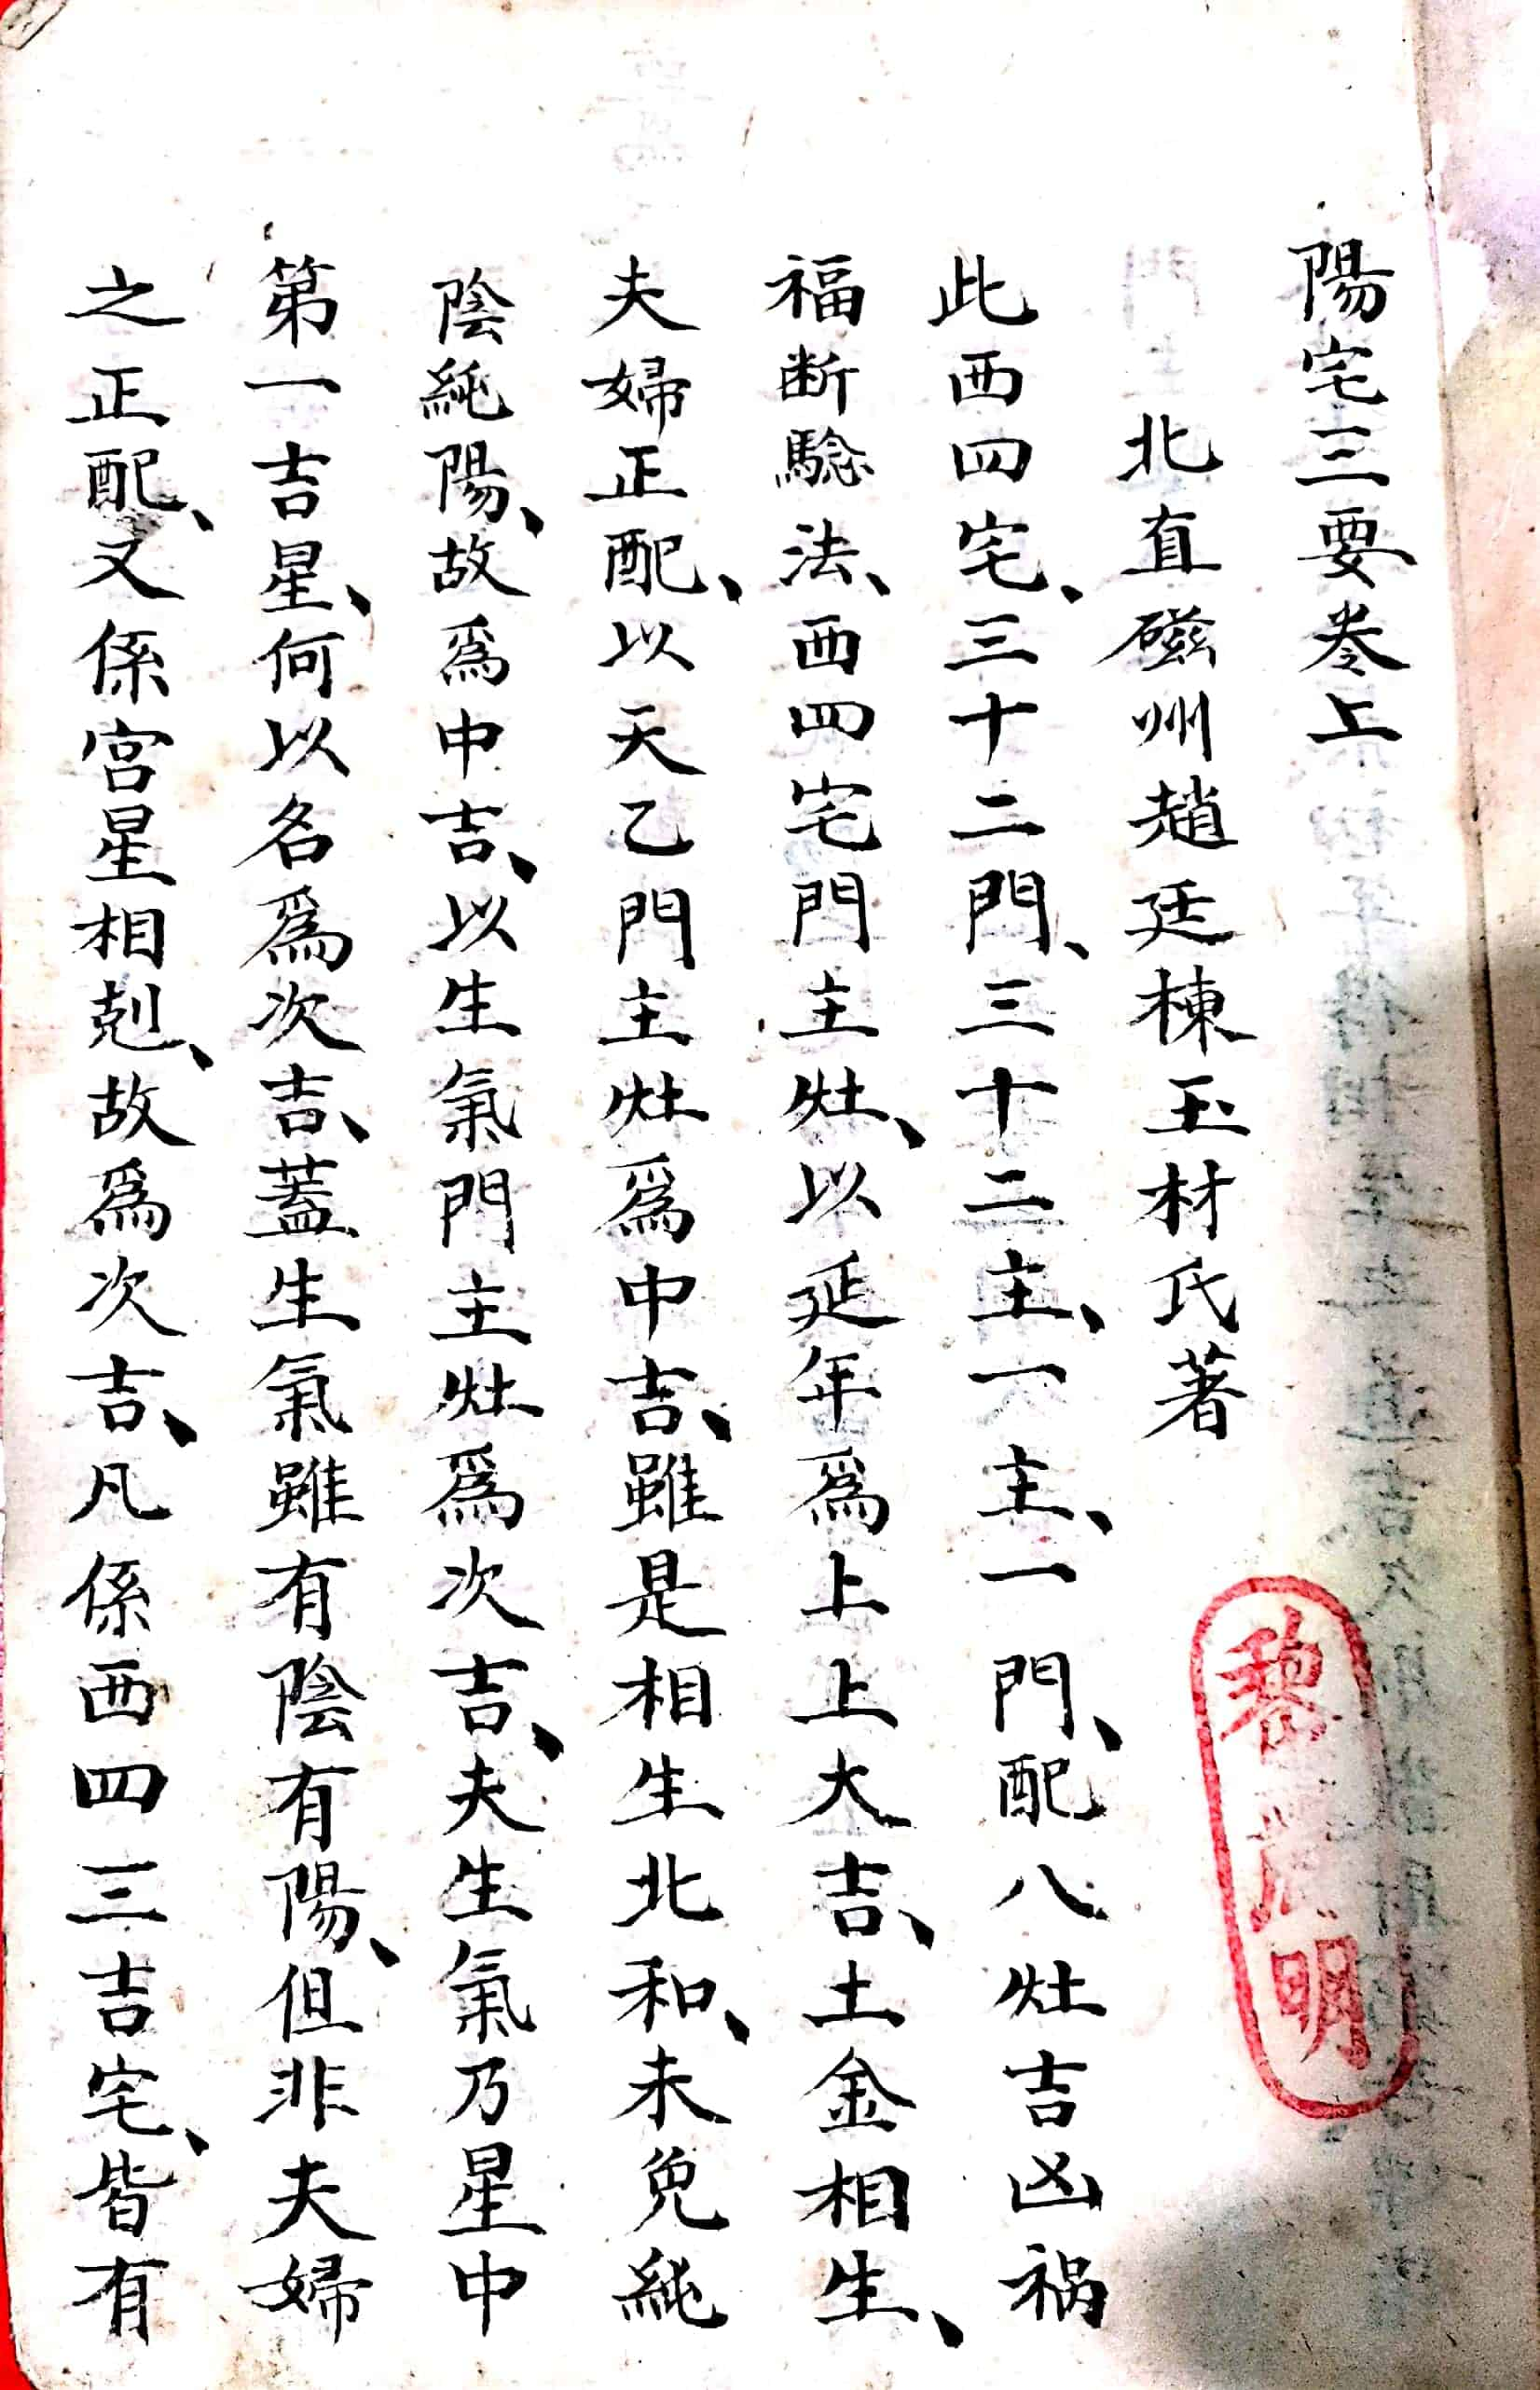 陽宅三要卷上
北直磁州趙廷棟玉材氏著
此西四宅、三十二門、三十二主、一主、一門、配八灶吉凶祸
福断騐法、西四宅門主灶、以延年爲上上大吉、土金相生、
夫婦正配、以天乙門主灶爲中吉、雖是相生北和、未免純
陰純陽、故爲中吉、以生氣門主灶爲次吉、夫生氣乃星中
第一吉星、何以名爲次吉、蓋生氣雖有陰有陽、但非夫婦
之正配、又係宮星相剋、故爲次吉、凡係西四三吉宅、皆有
黎 明